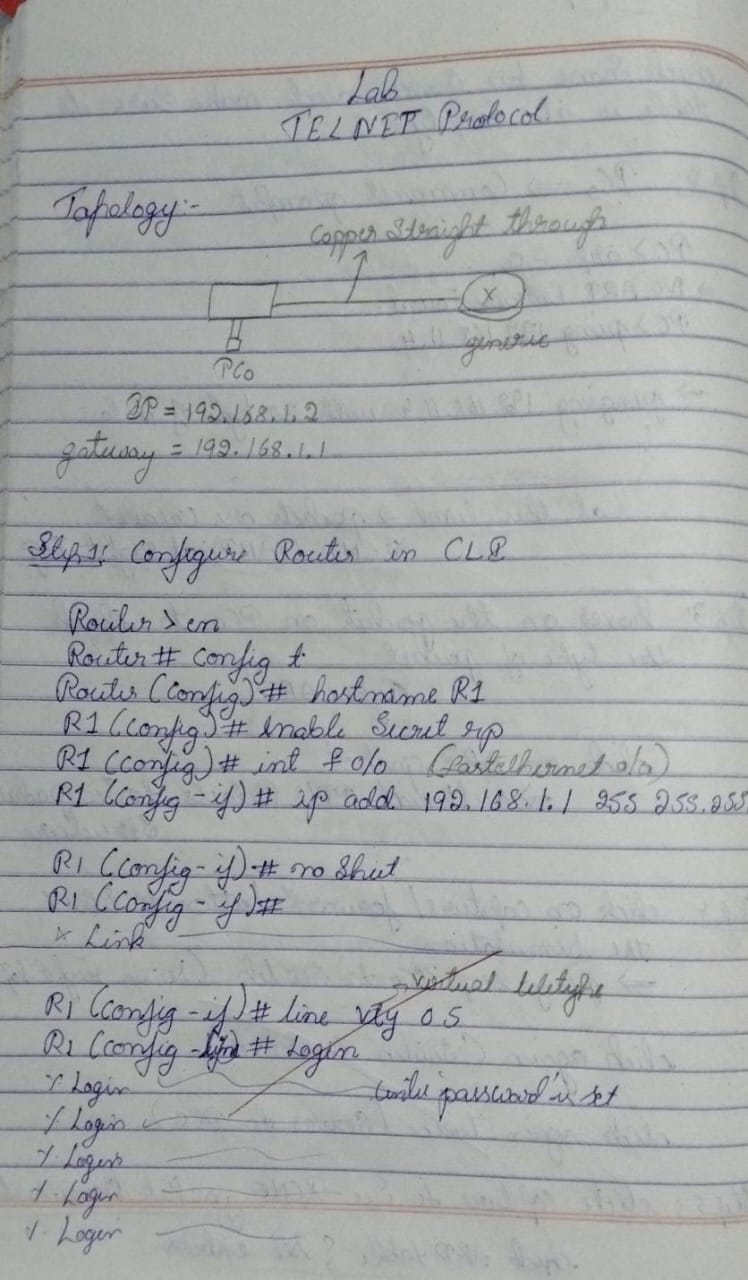 Lab
TELNET Protocol
Tapology:-
Copper Straight through
X
generic
PC0
IP = 192.168.1.2
gatuway = 192.168.1.1
Step1: Configure Router in CLI
Router > en
Router # config t
Router (config) # hostname R1
R1 (config) # enable Secret rp
R1 (config) # int f 0/0 (fastethernet 0/0)
R1 (config-if) # ip add 192.168.1.1 255 255.255
R1 (config-if) # no Shut
R1 (config-if) #
% Link
→ virtual teletype
R1 (config-if) # line vty 0 5
R1 (config-line) # Login
% Login until password is set
% Login
% Login
% Login
% Login